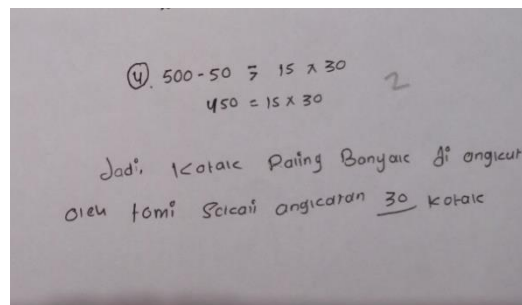 ④. 500-50 ≥ 15 x 30
450 = 15 x 30
2
Jadi, Kotak Paling Banyak di angkut
oleh tomi Sekali angkatan 30 kotak